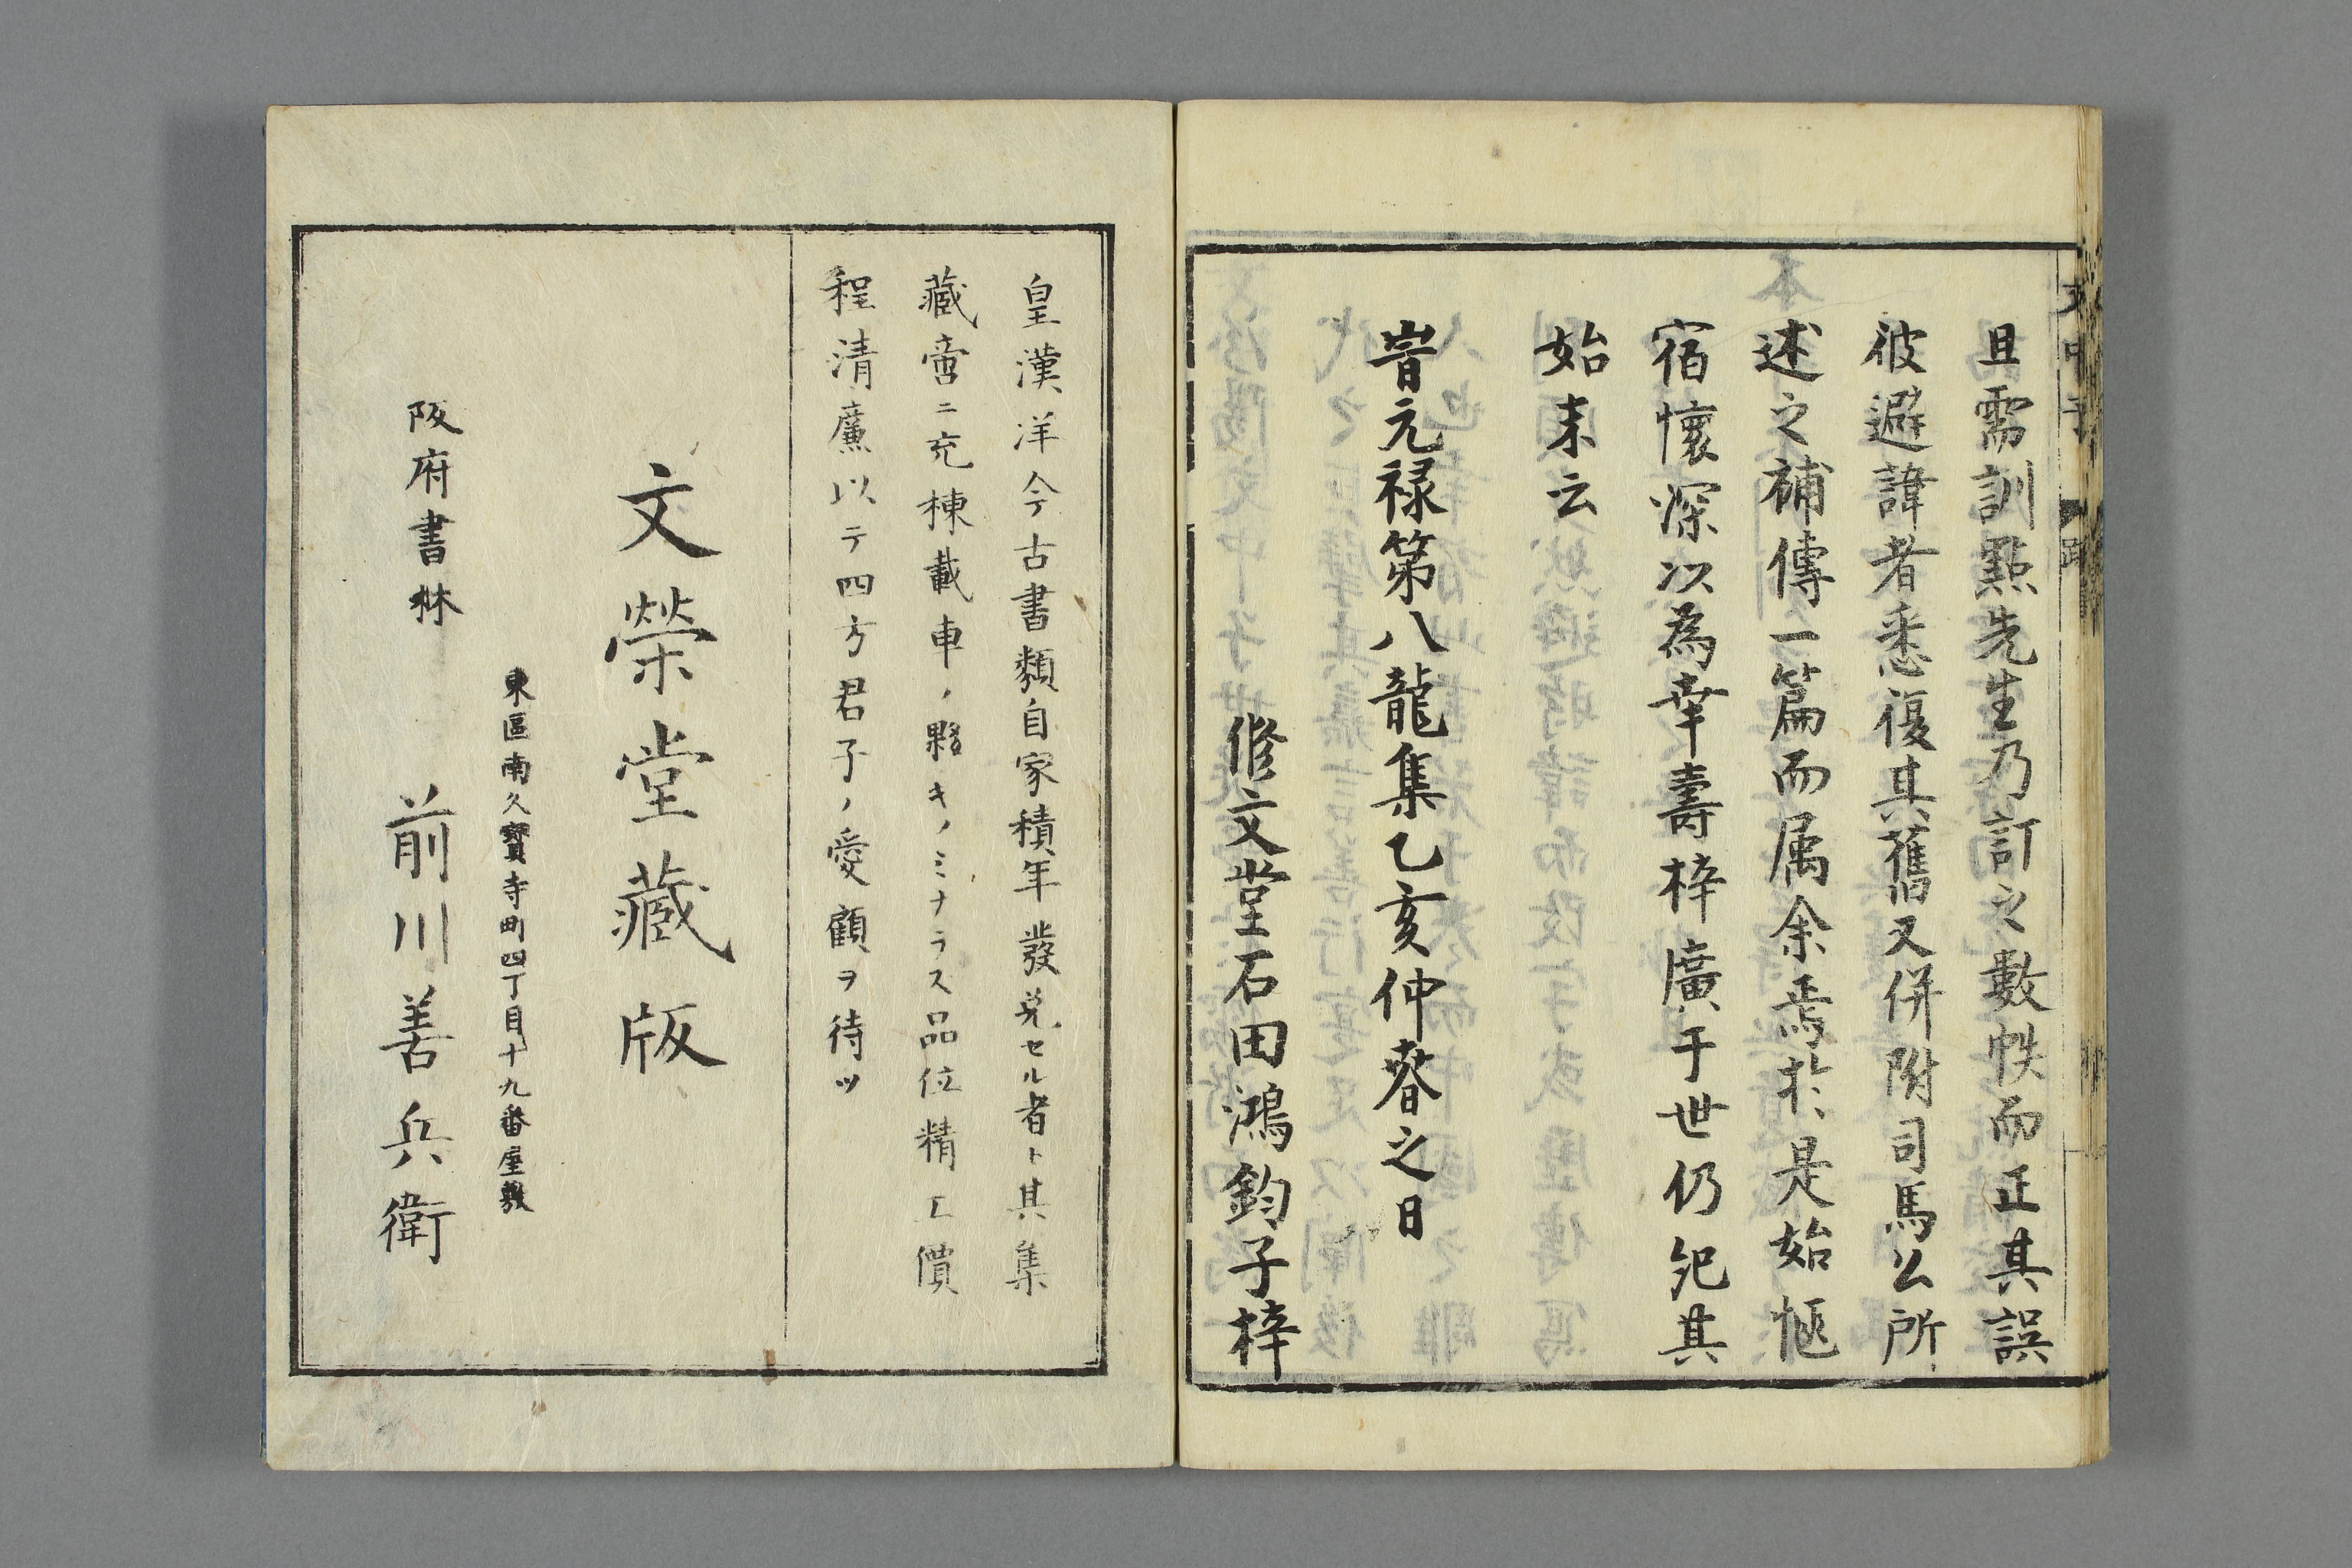 且需訓點先生乃訂之數帙而正其誤
彼避諱者悉復其舊又併附司馬公所
述之補傳一篇而属余焉於是始愜
宿懷深以為幸壽梓廣于世仍紀其
始末云
旹元禄第八龍集乙亥仲春之日
修文堂石田鴻鈞子梓
皇漢洋今古書類自家積年發兌セル者ト其集
藏啻ニ充棟載車ノ夥キノミナラス品位精工價
程清廉以テ四方君子ノ愛顧ヲ待ツ
文榮堂藏版
東區南久寶寺町四丁目十九番屋敷
阪府書林 前川善兵衛